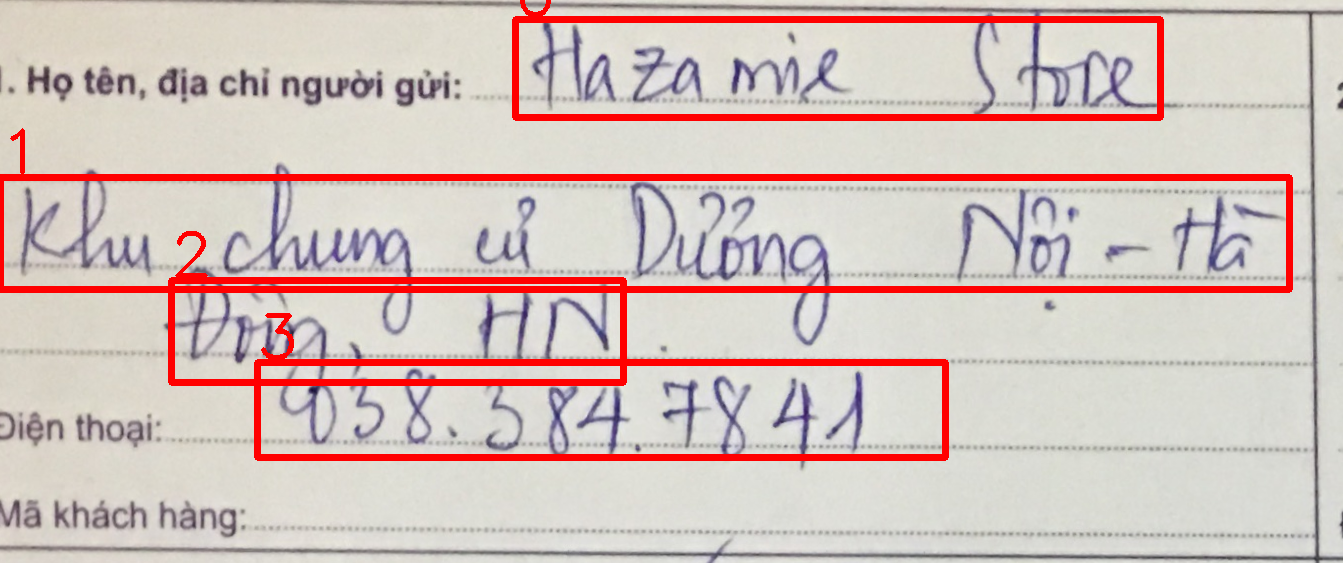 1. Họ tên, địa chỉ người gửi: Hazamie Store
Khu chung cư Dương Nội - Hà
Đông, HN.
Điện thoại: 038.384.7841
Mã khách hàng:
0
1
2
3